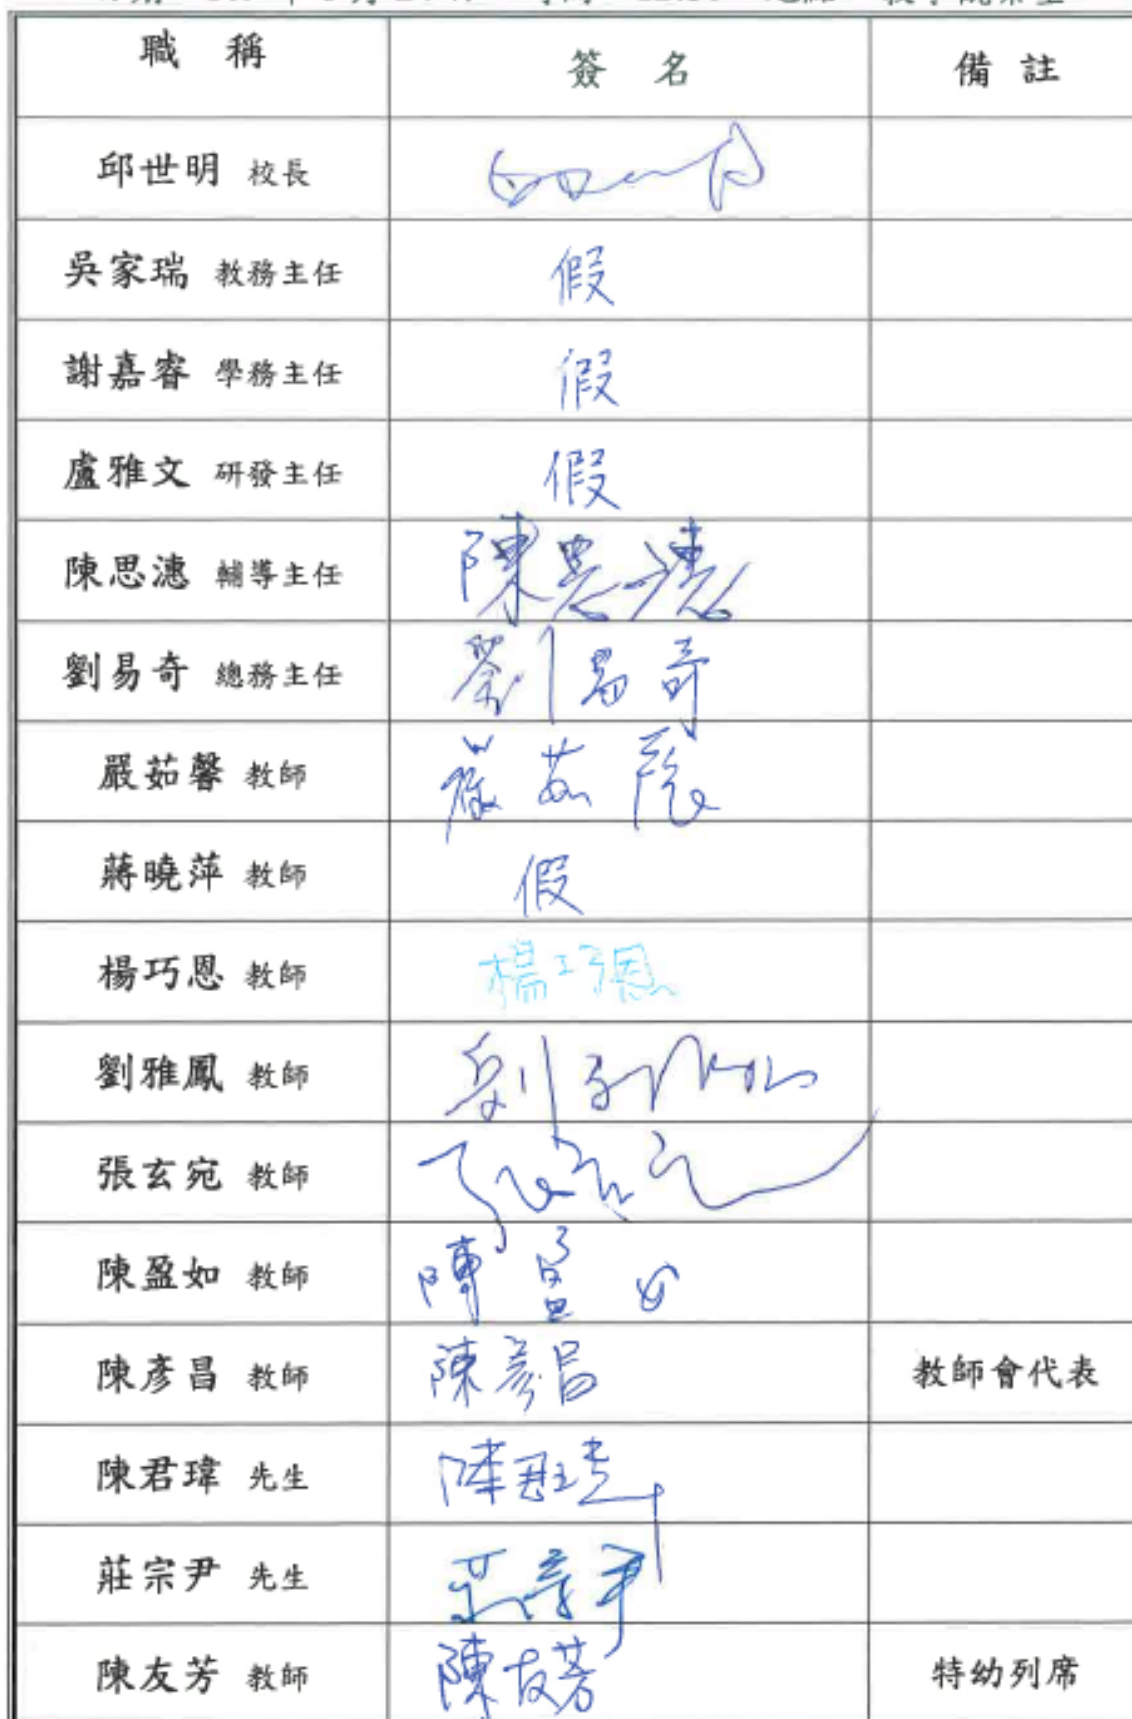 職 稱 簽 名 備 註
邱世明 校長
吳家瑞 教務主任 假
謝嘉睿 學務主任 假
盧雅文 研發主任 假
陳思漶 輔導主任 陳思漶
劉易奇 總務主任 劉易奇
嚴茹馨 教師 嚴茹馨
蔣曉萍 教師 假
楊巧恩 教師 楊巧恩
劉雅鳳 教師 劉雅鳳
張玄宛 教師
陳盈如 教師 陳盈如
陳彥昌 教師 陳彥昌 教師會代表
陳君瑋 先生 陳君瑋
莊宗尹 先生 莊宗尹
陳友芳 教師 陳友芳 特幼列席